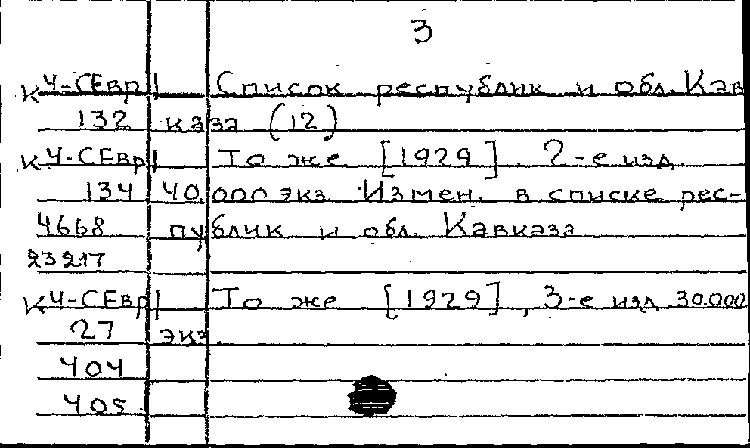 3
К Ч-СЕвр Список республик и обл. Кав
132 каза (12)
К Ч-СЕвр То же [1929]. 2-е изд.
134 40.000 экз. Измен. в списке рес-
4668 публик и обл. Кавказа
23217
К Ч-СЕвр То же [1929], 3-е изд. 30.000
27 экз.
404
405